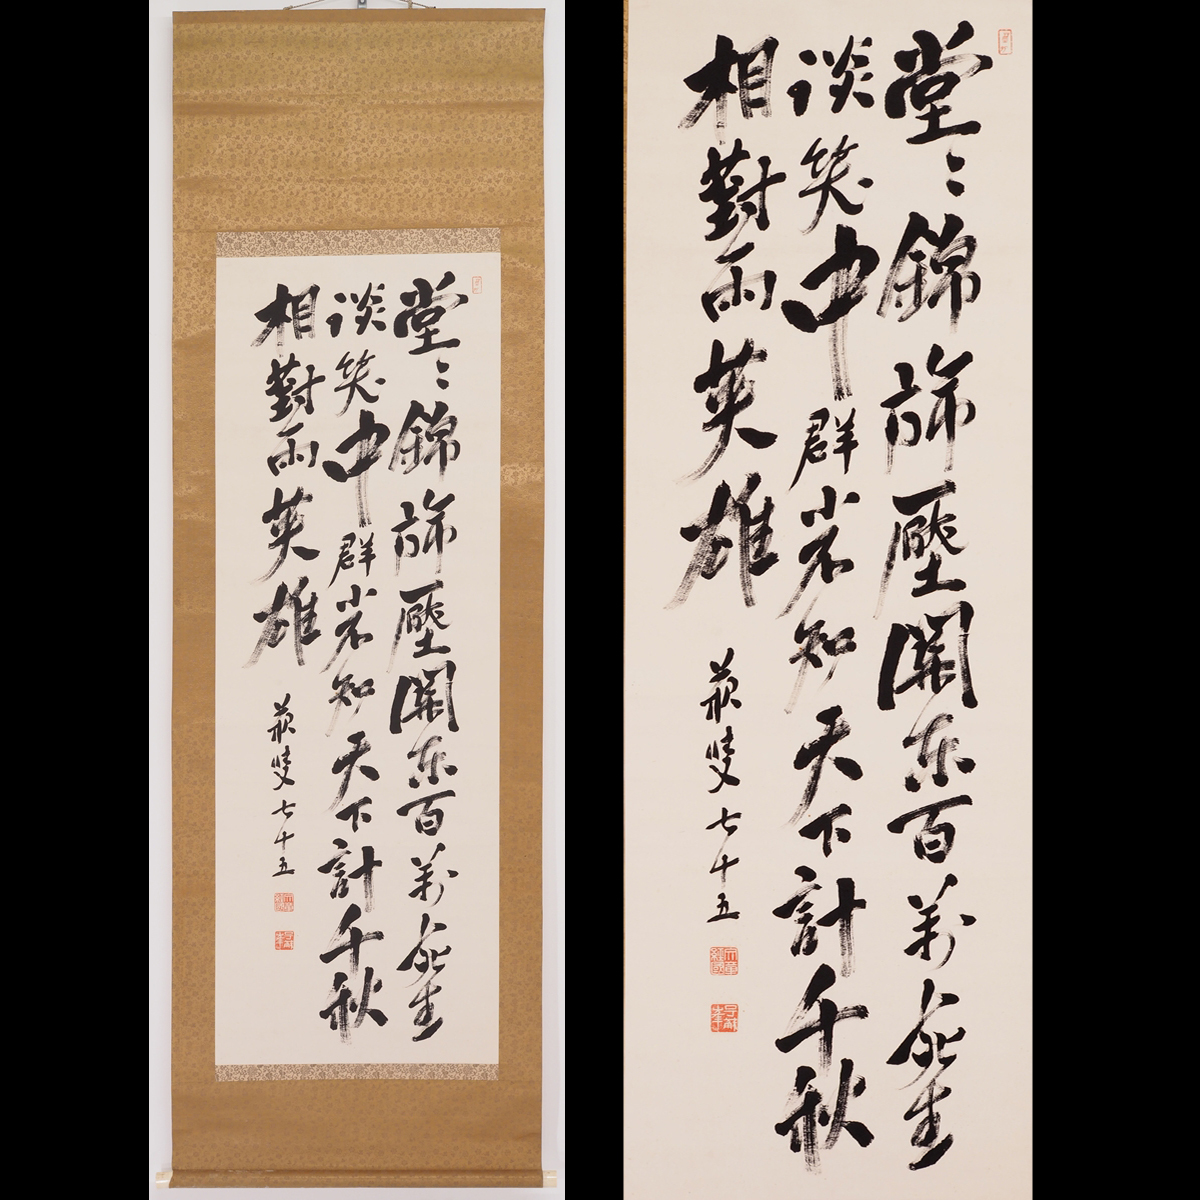 堂々錦旆壓關東百萬死生
談笑中群小不知天下計千秋
相對兩英雄
蘇叟七十五
堂々錦旆壓關東百萬死生
談笑中群小不知天下計千秋
相對兩英雄
蘇叟七十五